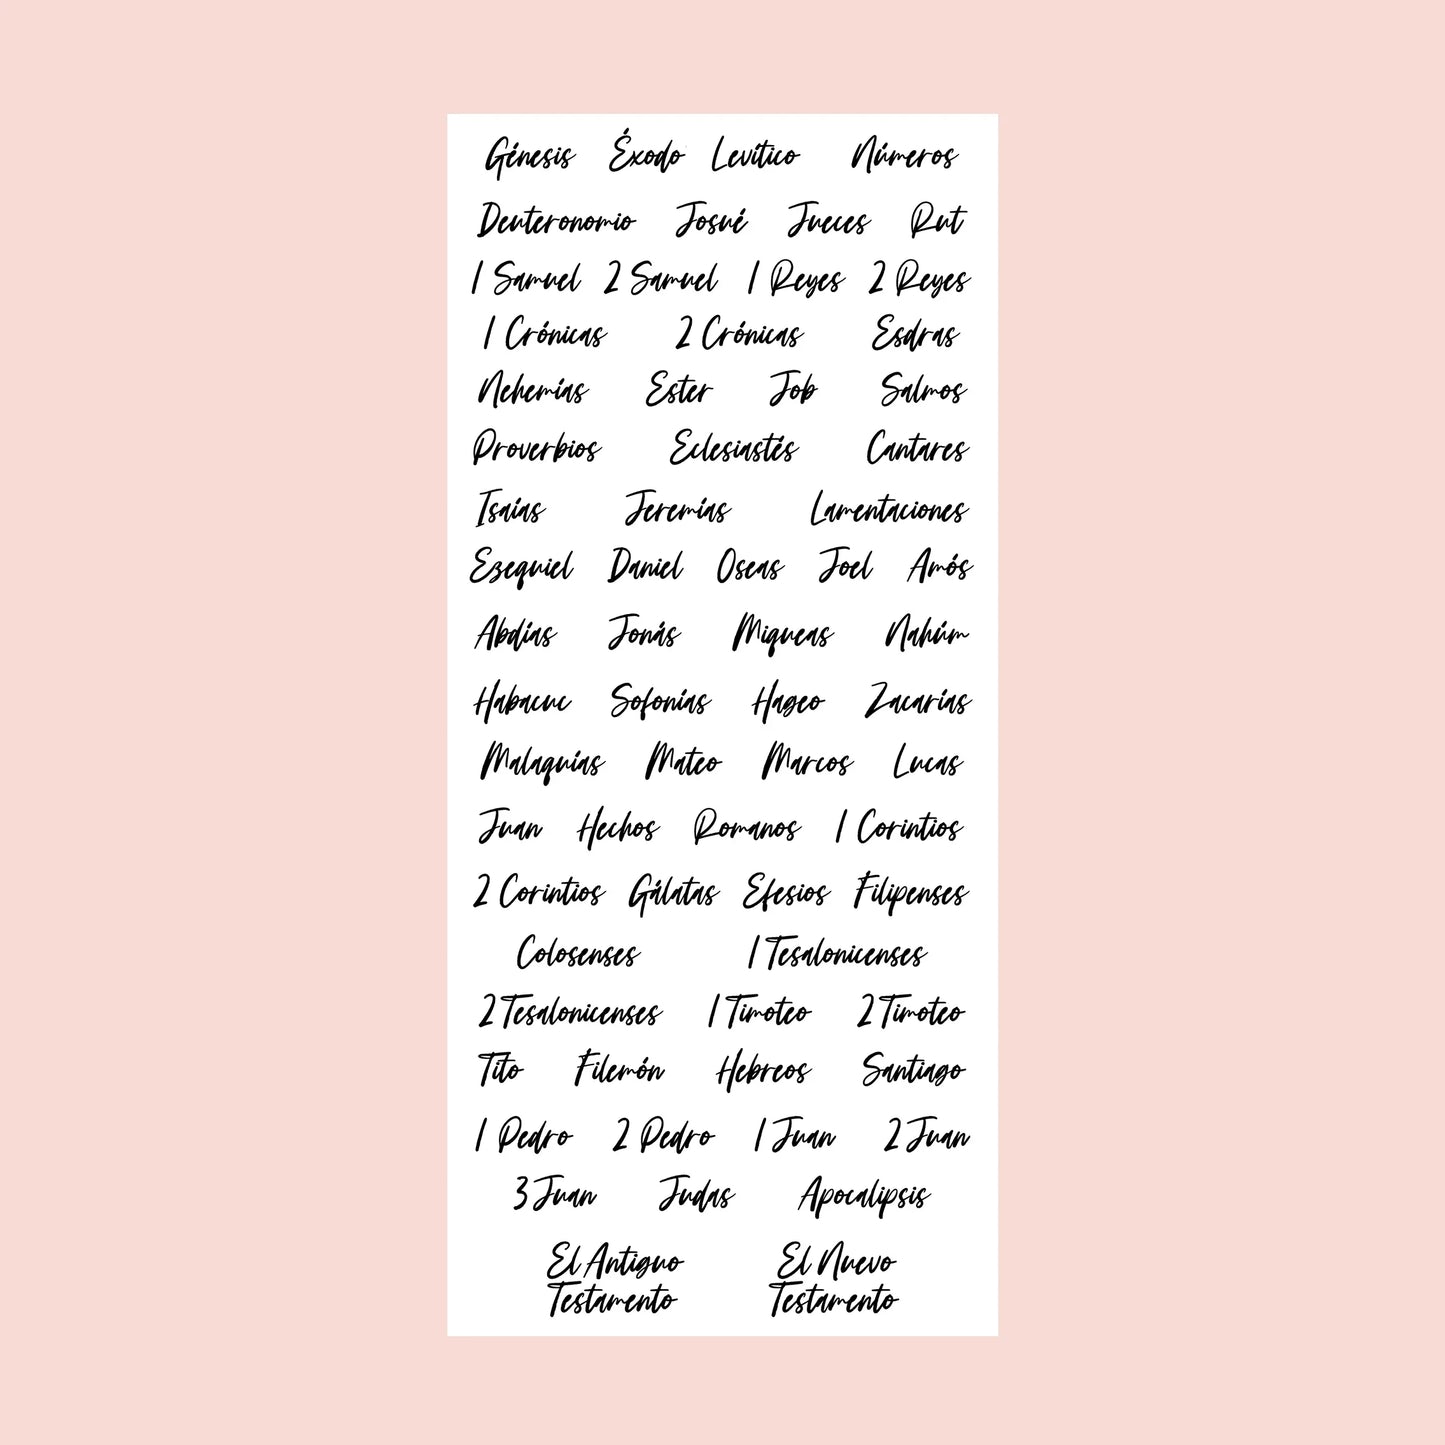 Génesis Éxodo Levítico Números
Deuteronomio Josué Jueces Rut
1 Samuel 2 Samuel 1 Reyes 2 Reyes
1 Crónicas 2 Crónicas Esdras
Nehemías Ester Job Salmos
Proverbios Eclesiastés Cantares
Isaías Jeremías Lamentaciones
Ezequiel Daniel Oseas Joel Amós
Abdías Jonás Miqueas Nahúm
Habacuc Sofonías Hageo Zacarías
Malaquías Mateo Marcos Lucas
Juan Hechos Romanos 1 Corintios
2 Corintios Gálatas Efesios Filipenses
Colosenses 1 Tesalonicenses
2 Tesalonicenses 1 Timoteo 2 Timoteo
Tito Filemón Hebreos Santiago
1 Pedro 2 Pedro 1 Juan 2 Juan
3 Juan Judas Apocalipsis
El Antiguo El Nuevo
Testamento Testamento